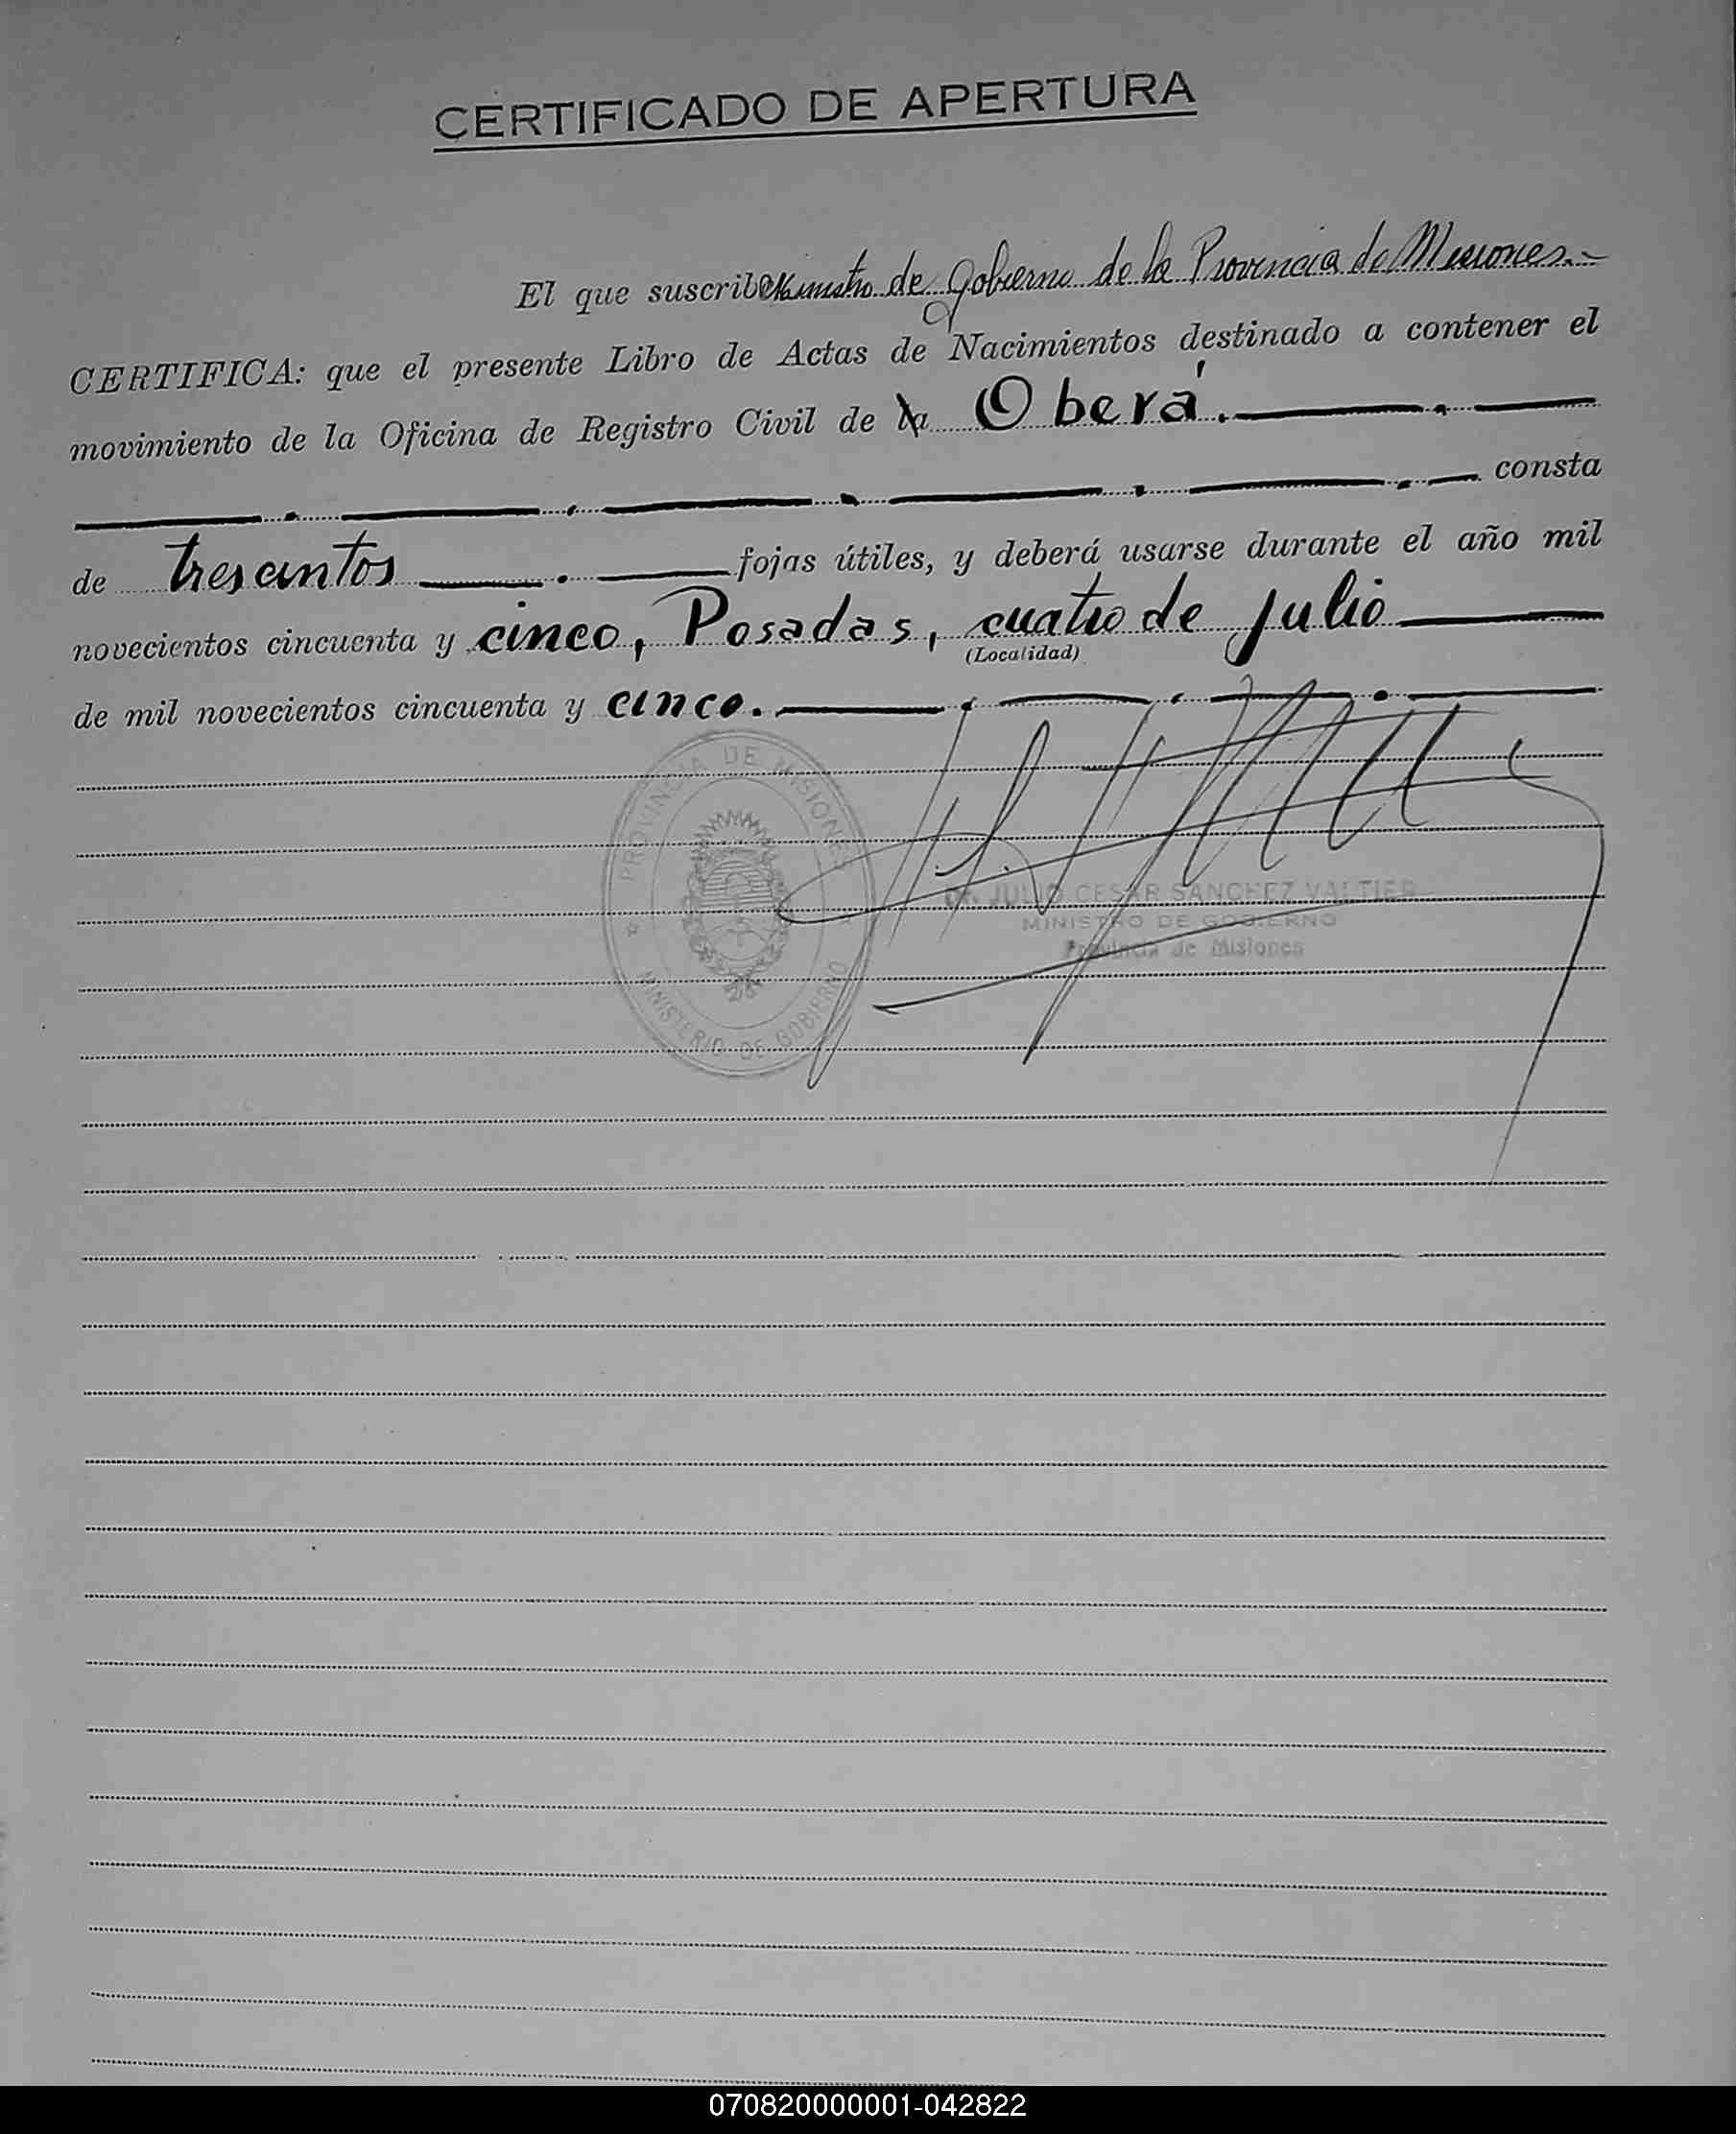 CERTIFICADO DE APERTURA
El que suscribe Ministro de Gobierno de la Provincia de Misiones.-
CERTIFICA: que el presente Libro de Actas de Nacimientos destinado a contener el
movimiento de la Oficina de Registro Civil de la Oberá.
consta
de trescintos fojas útiles, y deberá usarse durante el año mil
novecientos cincuenta y cinco, Posadas, cuatro de Julio
(Localidad)
de mil novecientos cincuenta y cinco.
PROVINCIA DE MISIONES
MINISTERIO DE GOBIERNO
Dr. JULIO CESAR SANCHEZ VALTIER
MINISTRO DE GOBIERNO
Provincia de Misiones
070820000001-042822